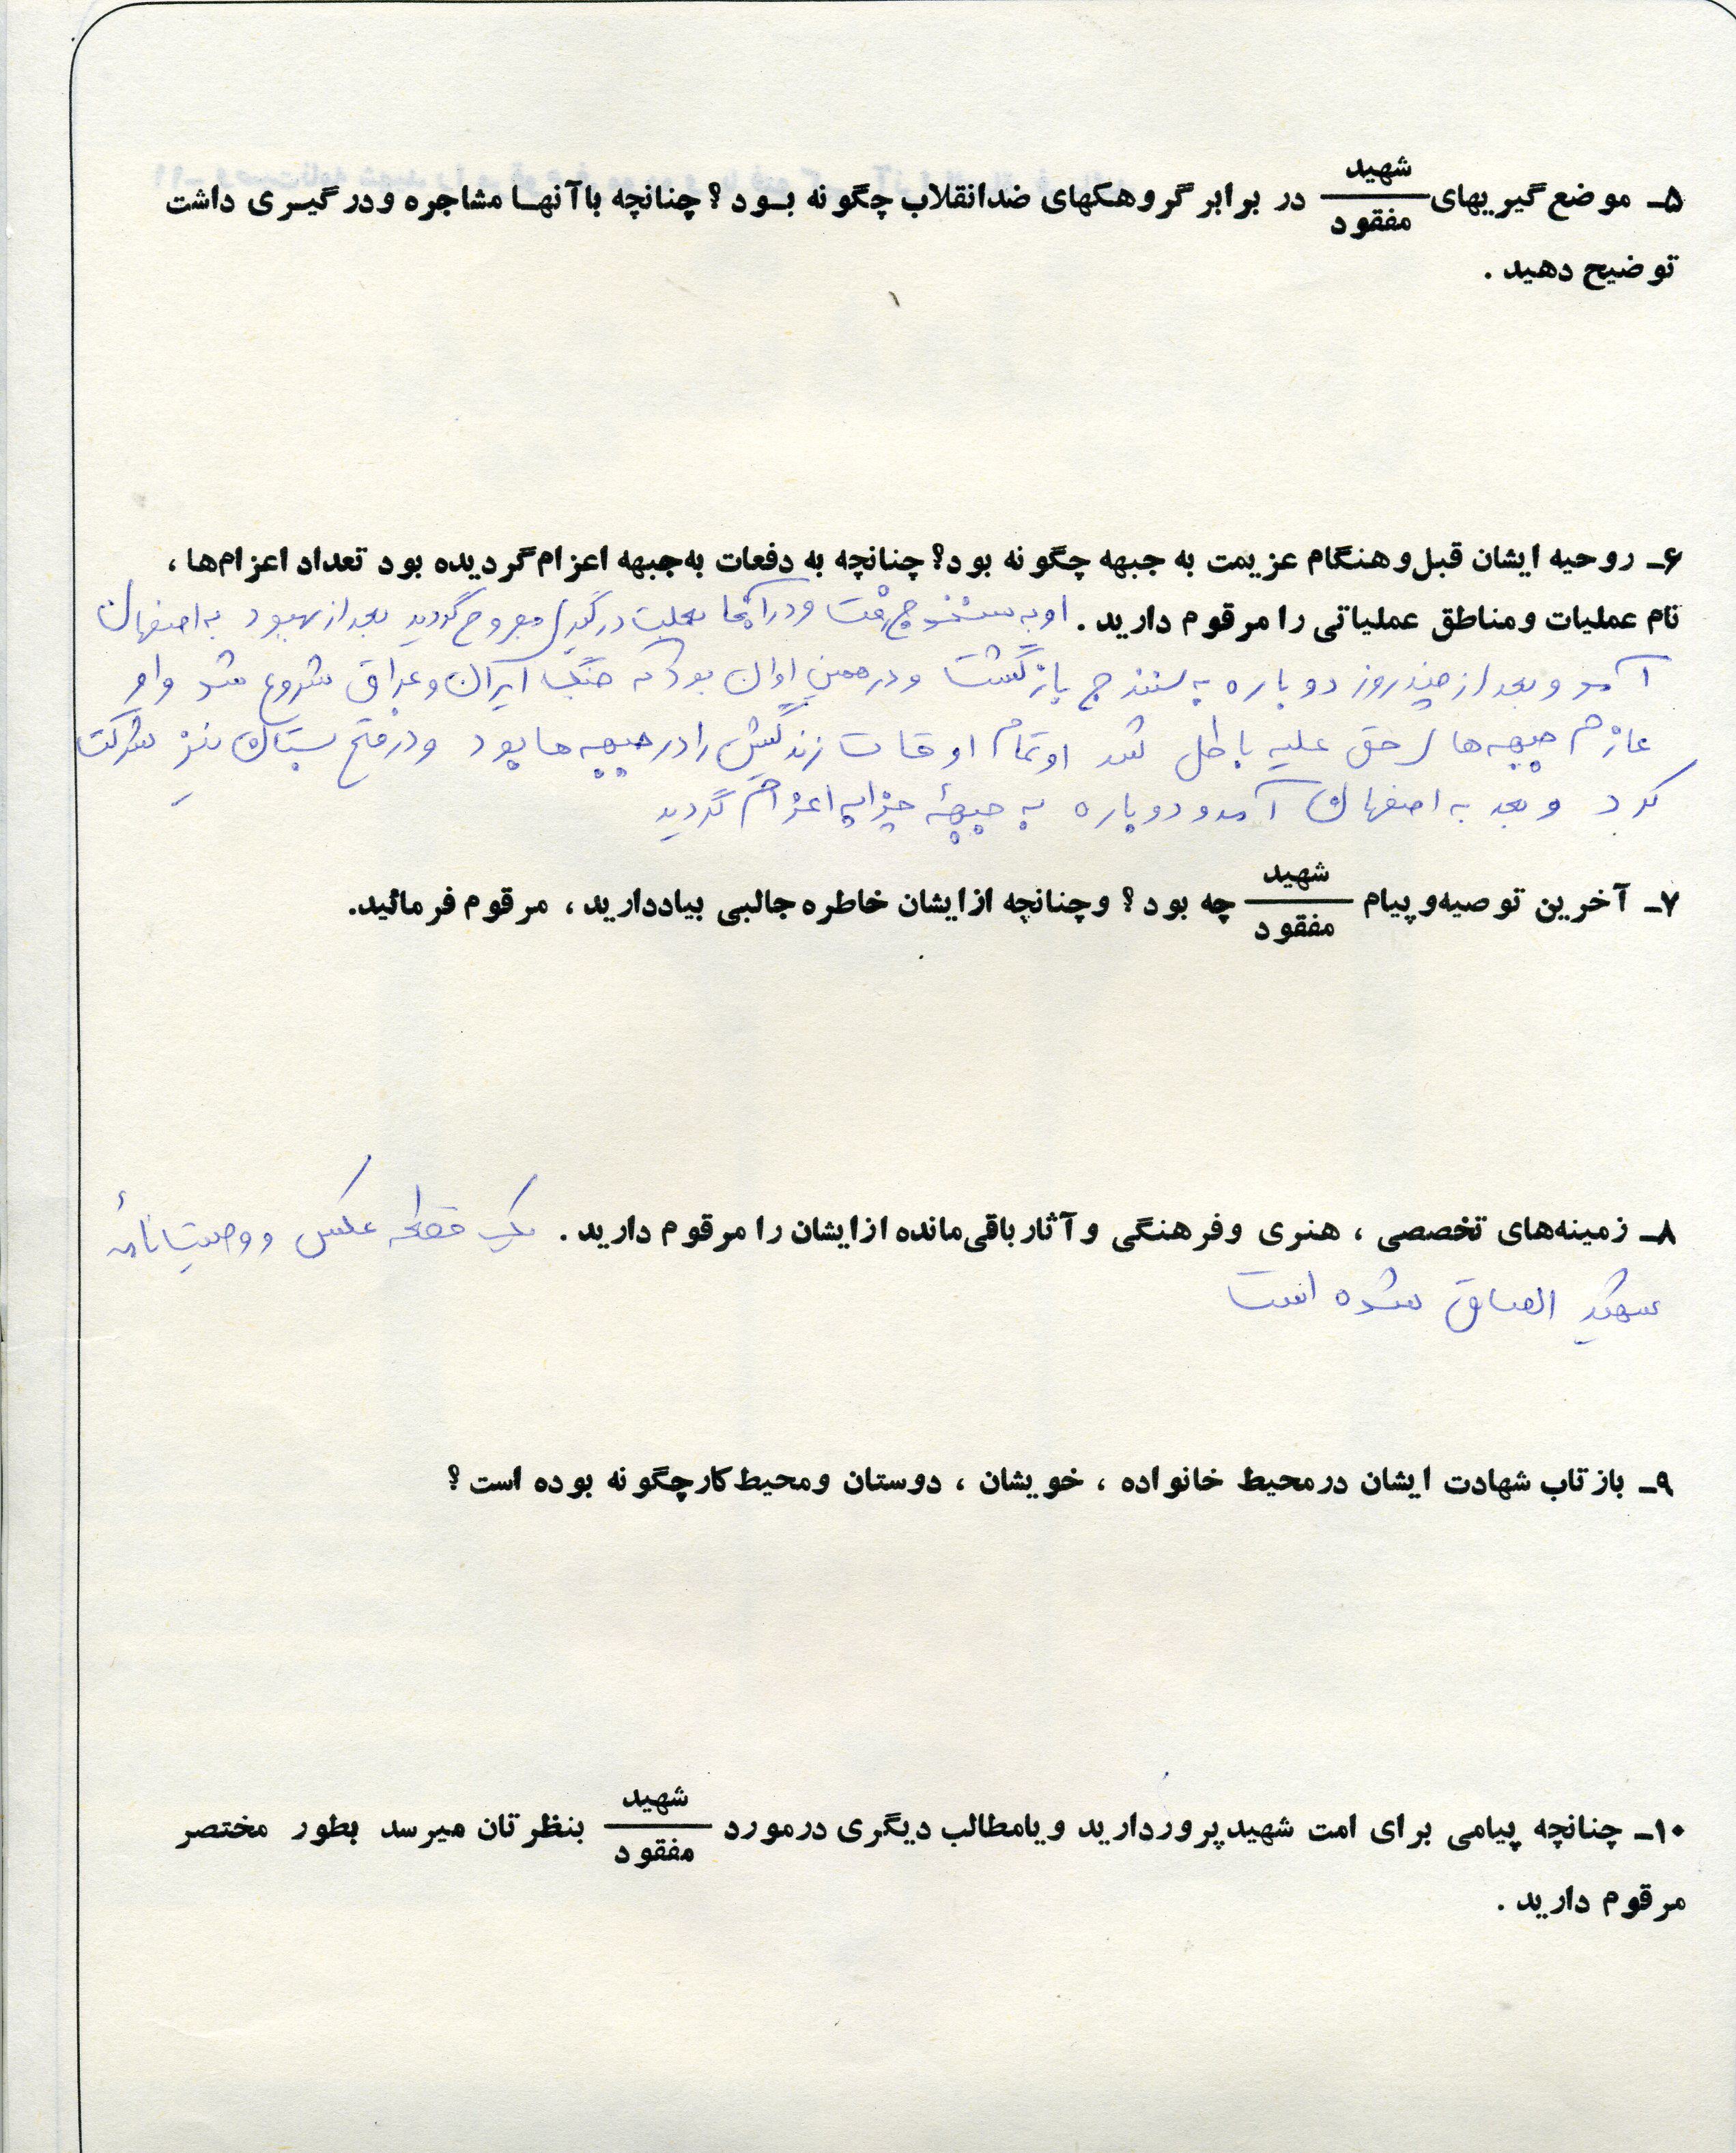 ۵ـ موضع‌گیریهای شهید/مفقود در برابر گروهکهای ضدانقلاب چگونه بود؟ چنانچه باآنها مشاجره ودرگیری داشت
توضیح دهید .
۶ـ روحیه ایشان قبل‌وهنگام عزیمت به جبهه چگونه بود؟ چنانچه به دفعات به‌جبهه اعزام‌گردیده بود تعداد اعزام‌ها ،
نام عملیات ومناطق عملیاتی را مرقوم دارید . او به سنندج رفت و در آنجا بعلت درگیری مجروح گردید بعد از بهبود به اصفهان
آمد و بعد از چند روز دوباره به سنندج بازگشت و در همین اوان بود که جنگ ایران و عراق شروع شد و او
عازم جبهه‌های حق علیه باطل شد او تمام اوقات زندگیش را در جبهه‌ها بود و در فتح بستان نیز شرکت
کرد و بعد به اصفهان آمد و دوباره به جبههٔ چزابه اعزام گردید
۷ـ آخرین توصیه‌وپیام شهید/مفقود چه بود؟ وچنانچه ازایشان خاطره جالبی بیاددارید، مرقوم فرمائید.
۸ـ زمینه‌های تخصصی ، هنری وفرهنگی وآثارباقی‌مانده ازایشان را مرقوم دارید . یک قطعه عکس و وصیتنامهٔ
شهید الصاق شده است
۹ـ بازتاب شهادت ایشان درمحیط خانواده ، خویشان ، دوستان ومحیط‌کارچگونه بوده است؟
۱۰ـ چنانچه پیامی برای امت شهیدپروردارید ویامطالب دیگری درمورد شهید/مفقود بنظرتان میرسد بطور مختصر
مرقوم دارید .